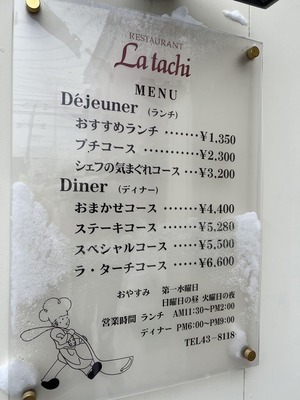 RESTAURANT
La tachi
MENU
Déjeuner (ランチ)
おすすめランチ ·······¥1,350
プチコース ·······¥2,300
シェフの気まぐれコース ···¥3,200
Diner (ディナー)
おまかせコース ·····¥4,400
ステーキコース ·····¥5,280
スペシャルコース ·····¥5,500
ラ・ターチコース ·····¥6,600
おやすみ 第一水曜日
日曜日の昼 火曜日の夜
営業時間 ランチ AM11:30~PM2:00
ディナー PM6:00~PM9:00
TEL43-8118